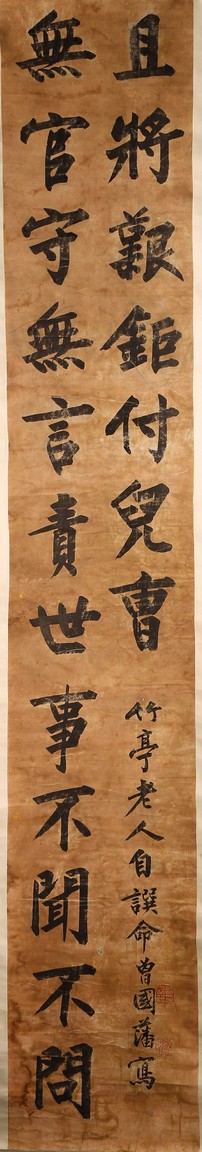 無官守無言責世事不聞不問
且將艱鉅付兒曹
竹亭老人自譔命曾國藩寫